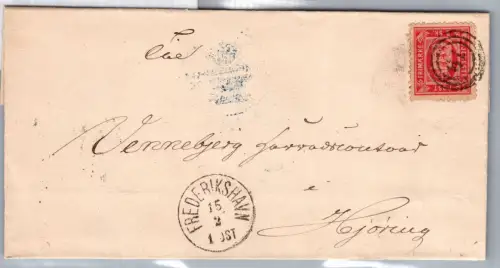 Til
Vennebjerg Herredscontoir
i
Hjöring
FREDERIKSHAVN
15
2
1 POST